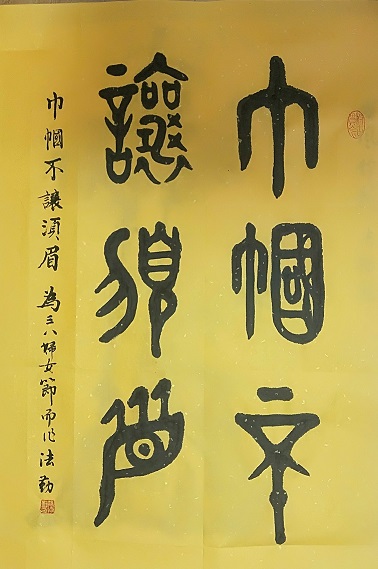 巾帼不
讓須眉
巾帼不讓湏眉 為三八婦女節而作 法勤